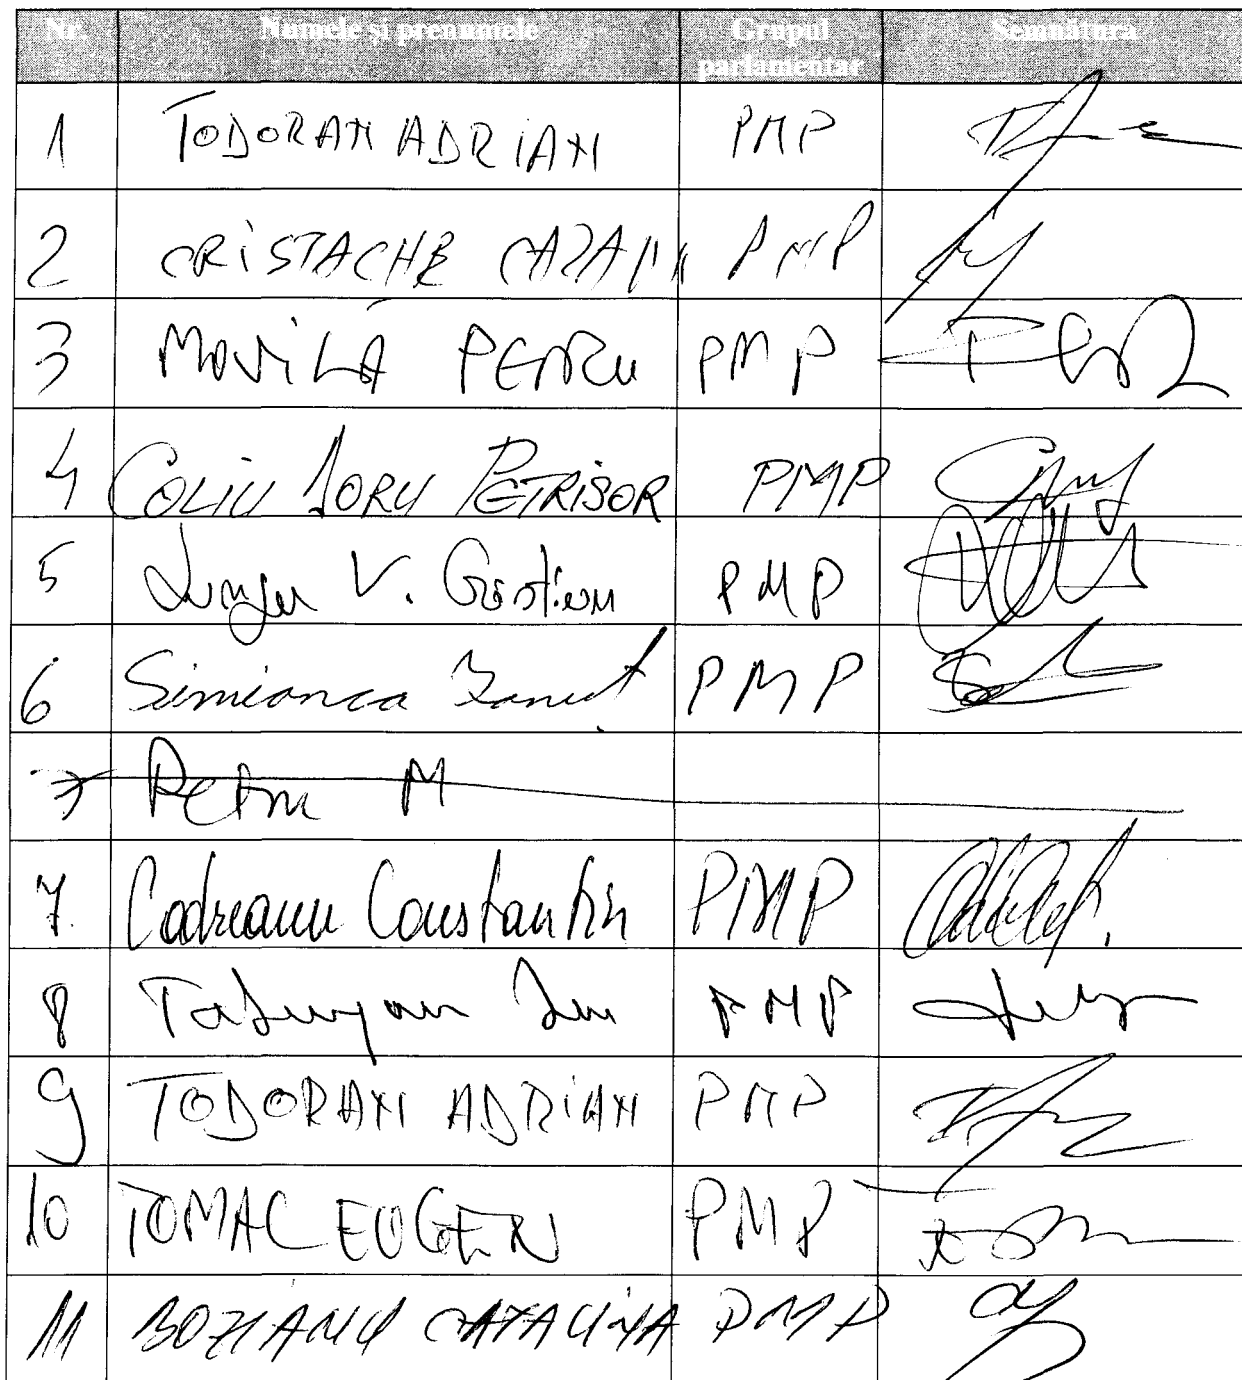 Nr. Numele și prenumele Grupul parlamentar Semnătura
1 TODORAN ADRIAN PMP
2 CRISTACHE PMP
3 MOVILĂ PETRU PMP
4 COLIU DORU PETRISOR PMP
5 Lungu V. Cristian PMP
6 Simionca Ionuț PMP
7 Petru M
7. Codreanu Constantin PMP
8 PMP
9 TODORAN ADRIAN PMP
10 TOMAC EUGEN PMP
11 BOZIANU CATALINA PMP